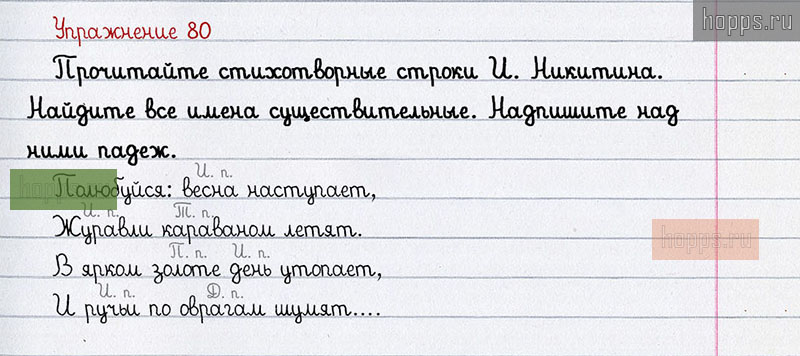 hopps.ru
Упражнение 80
Прочитайте стихотворные строки И. Никитина.
Найдите все имена существительные. Надпишите над
ними падеж.
И. п.
Полюбуйся: весна наступает,
И. п. Т. п.
Журавли караваном летят.
hopps.ru
П. п. И. п.
В ярком золоте день утопает,
И. п. Д. п.
И ручьи по оврагам шумят....